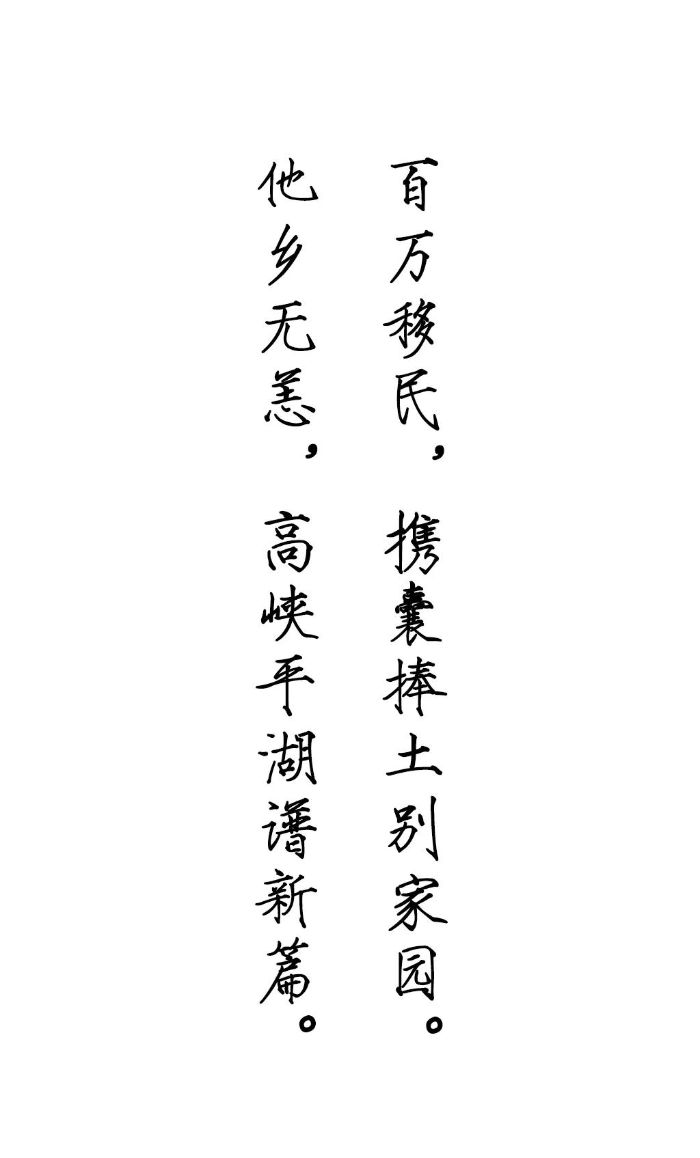 百万移民，携囊捧土别家园。
他乡无恙，高峡平湖谱新篇。